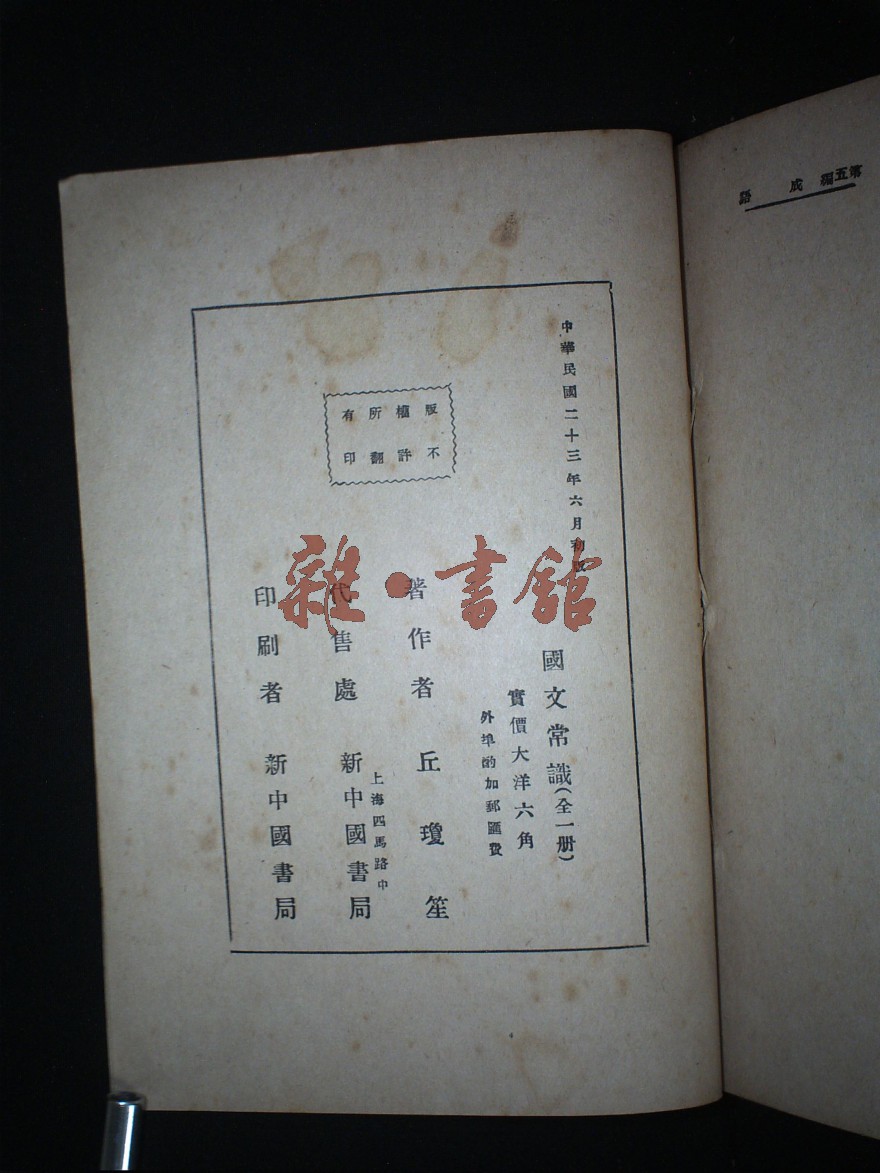 第五編 成語
中華民國二十三年六月初版
國文常識（全一册）
實價大洋六角
外埠酌加郵匯費
版權所有
不許翻印
著作者 丘瓊笙
上海四馬路中
代售處 新中國書局
印刷者 新中國書局
雜·書館